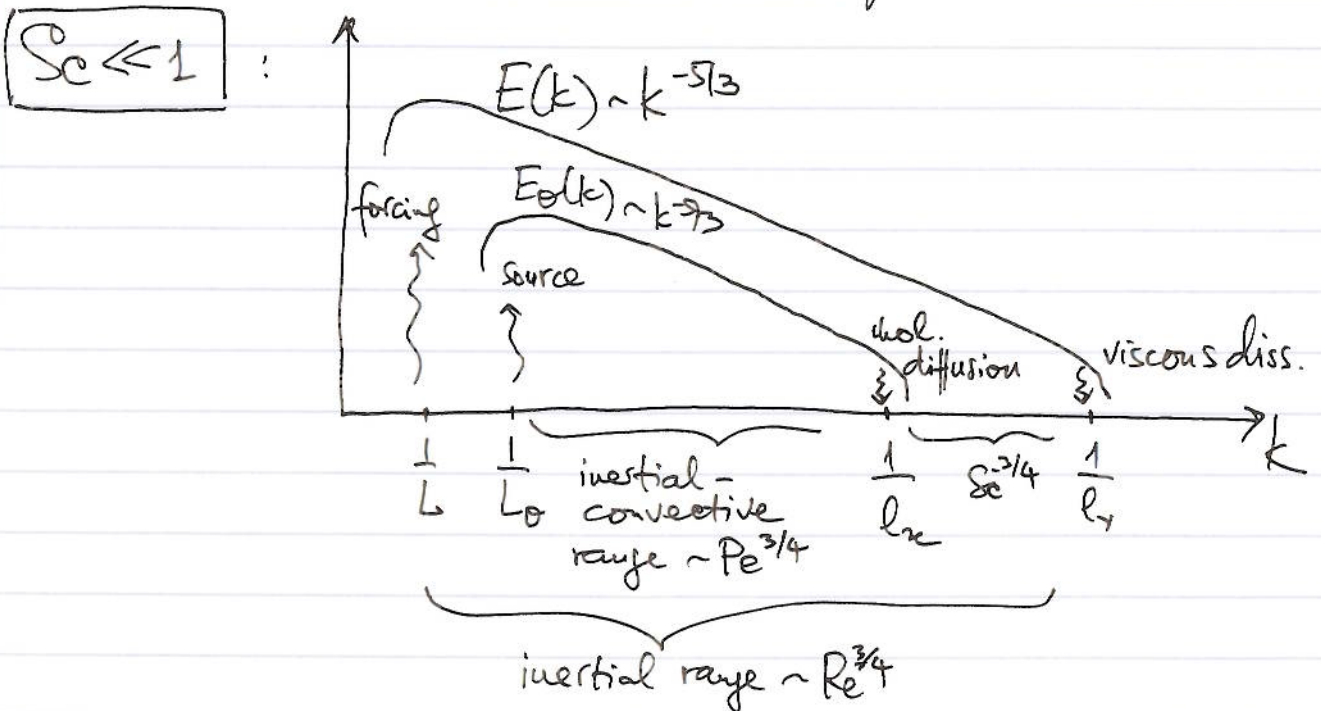 Sc ≪ 1 :
E(k) ~ k^{-5/3}
E_θ(k) ~ k^{-5/3}
forcing
source
mol.
diffusion
viscous diss.
k
1/L
1/L_θ
inertial-
convective
range ~ Pe^{3/4}
1/l_κ
Sc^{-3/4}
1/l_ν
inertial range ~ Re^{3/4}